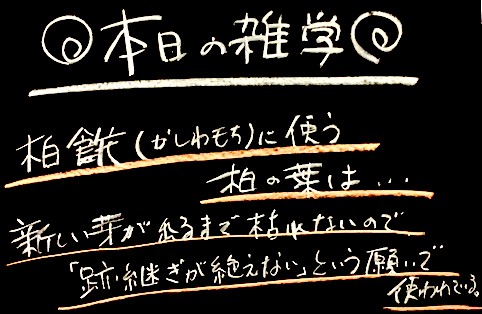 本日の雑学
柏餅(かしわもち)に使う
柏の葉は...
新しい芽が出るまで枯れないので
「跡継ぎが絶えない」という願いで
使われている。